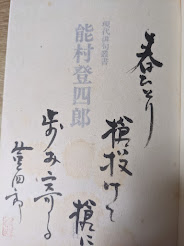 現代俳句叢書
能村登四郎
春ひとり
槍投げて
槍に
歩み寄る
登四郎